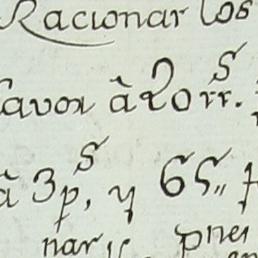 Racionar los
favor â 20 rr.ˢ
â 3 p.ˢ y 65,,
nar
pnei